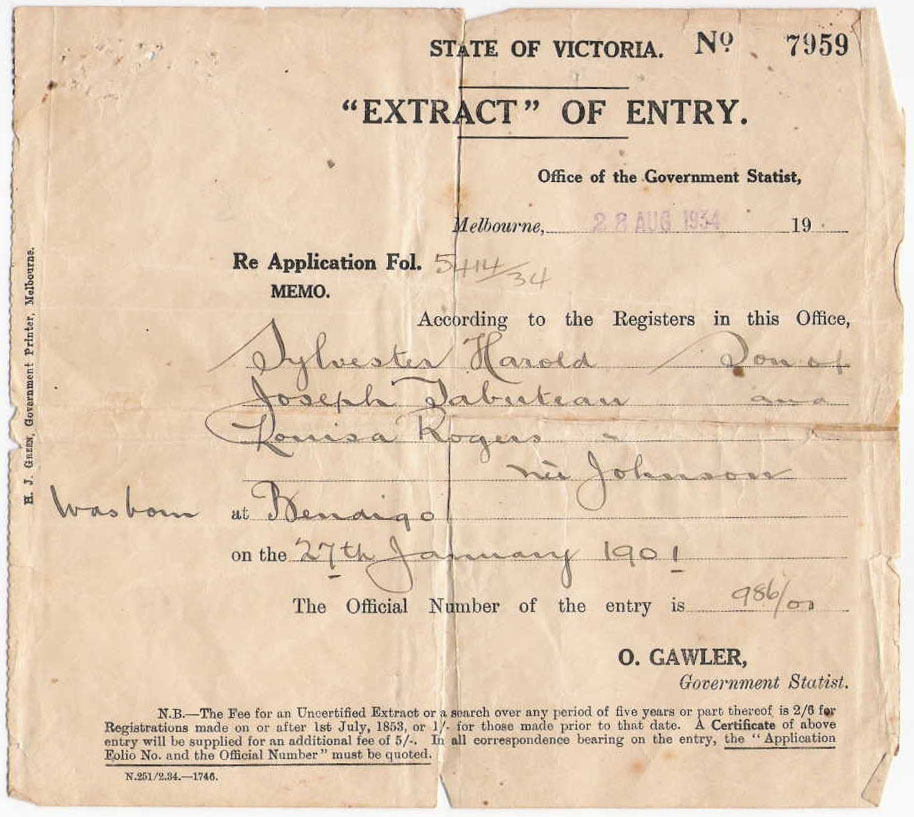 STATE OF VICTORIA. No 7959
"EXTRACT" OF ENTRY.
Office of the Government Statist,
Melbourne, 28 AUG 1934 19
Re Application Fol. 5414/34
MEMO.
According to the Registers in this Office,
Sylvester Harold Son of
Joseph Tabuteau and
Louisa Rogers
née Johnson
was born at Bendigo
on the 27th January 1901
The Official Number of the entry is 986/01
O. GAWLER,
Government Statist.
N.B.—The Fee for an Uncertified Extract or a search over any period of five years or part thereof is 2/6 for
Registrations made on or after 1st July, 1853, or 1/- for those made prior to that date. A Certificate of above
entry will be supplied for an additional fee of 5/-. In all correspondence bearing on the entry, the "Application
Folio No. and the Official Number" must be quoted.
N.251/2.34.—1746.
H. J. GREEN, Government Printer, Melbourne.